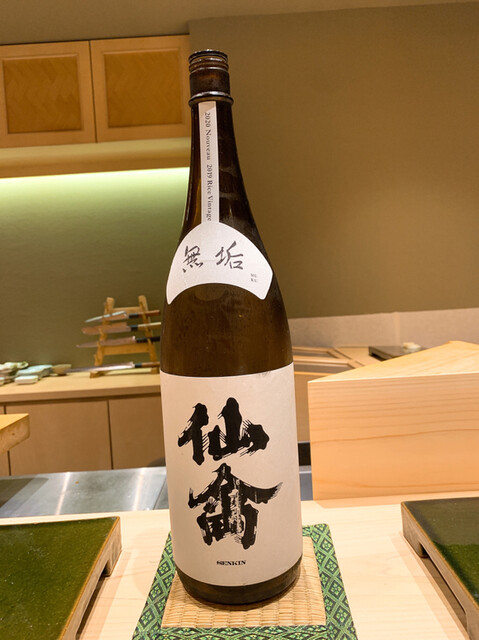 2020 Nouveau 2019 Rice Vintage
無垢
仙禽
SENKIN